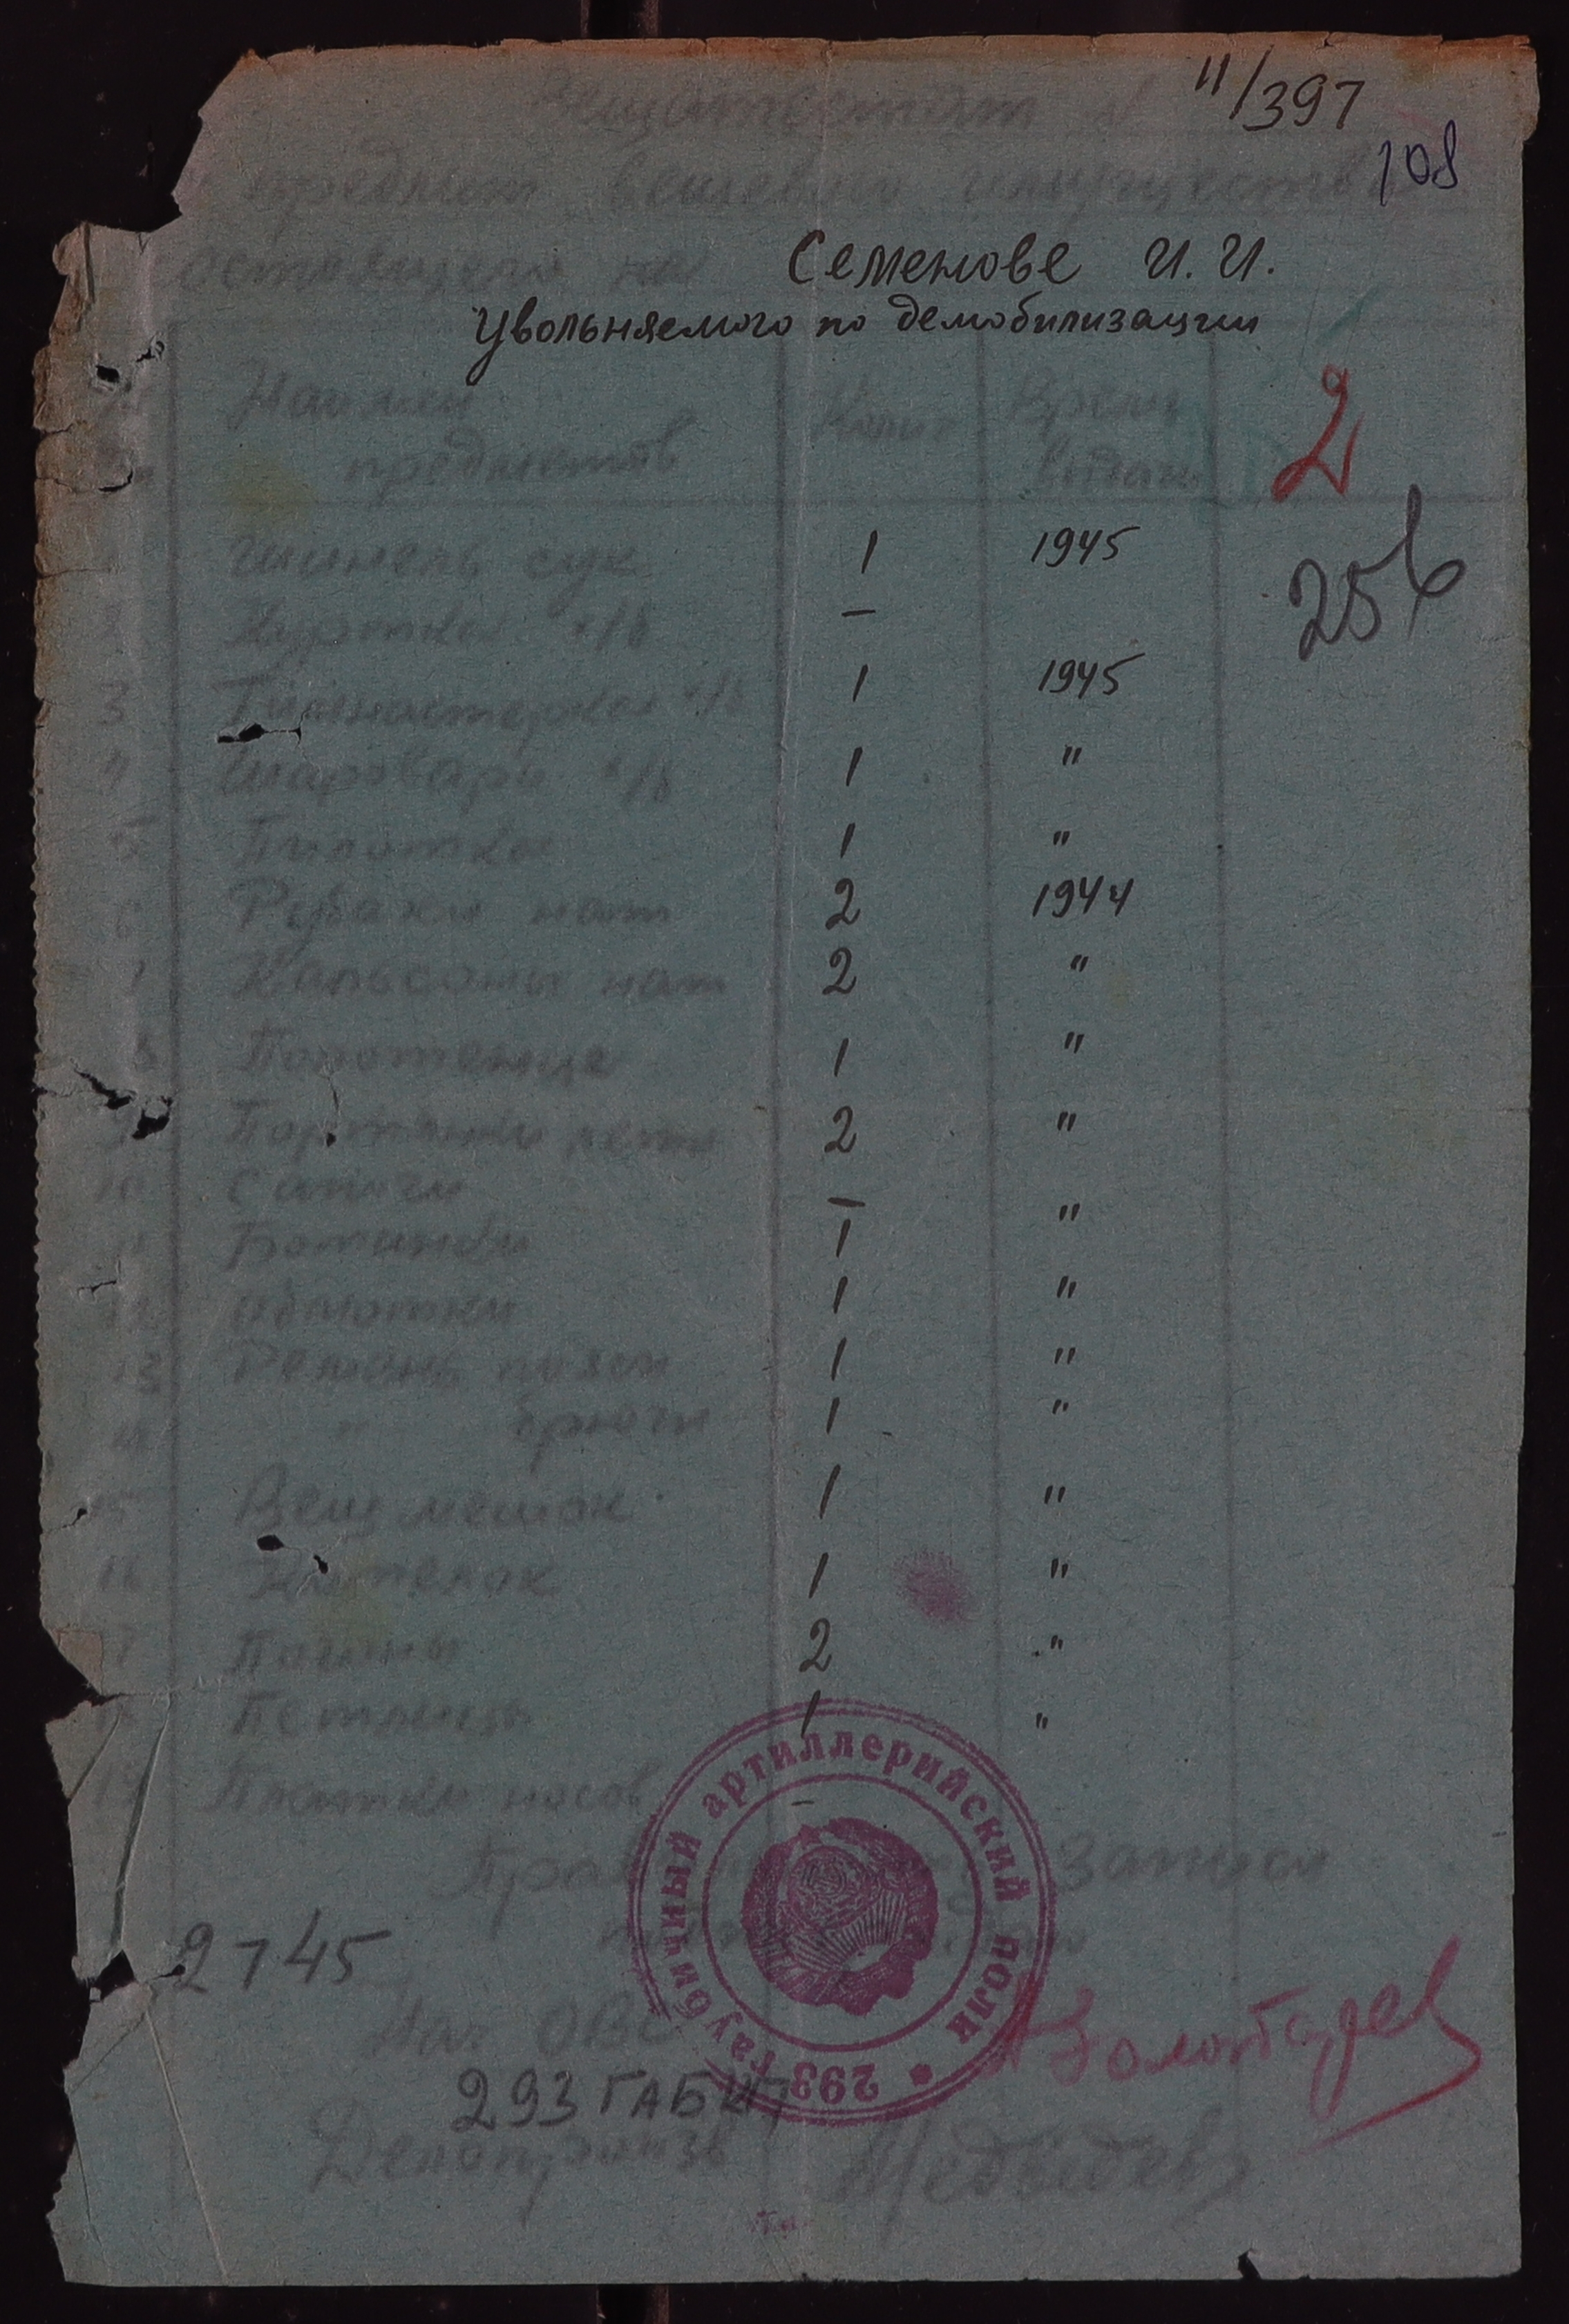 Вещаттестат № 11/397
108
предмет вещевого имущества
Семенове И. И.
Увольняемого по демобилизации
Наимен предметов Колич Время выдачи
2
256
Шинель сук 1 1945
Куртка х/б —
3 Гимнастерка х/б 1 1945
4 Шаровары х/б 1 "
5 Пилотка 1 "
6 Рубахи нат 2 1944
7 Кальсоны нат 2 "
8 Полотенце 1 "
9 Портянки летн 2 "
10 Сапоги —
11 Ботинки 1 "
12 Обмотки 1 "
13 Ремень поясн 1 "
14 " брючн 1 "
15 Вещмешок 1 "
16 Котелок 1 "
17 Погоны 2 "
18 Петлицы 1 "
19 Платки носов —
записи
2745
Нач ОВС
293 ГАБКП
Делопроизв Медведев
293 гаубичный артиллерийский полк